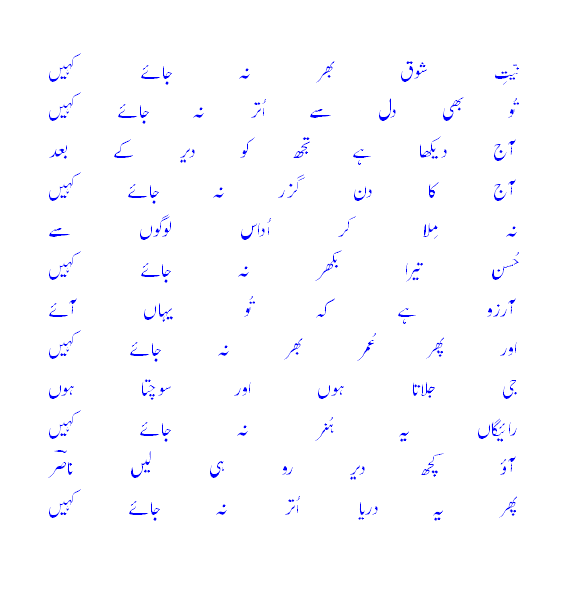 نیّتِ شوق بھر نہ جائے کہیں
تُو بھی دل سے اُتر نہ جائے کہیں
آج دیکھا ہے تجھ کو دیر کے بعد
آج کا دن گزر نہ جائے کہیں
نہ مِلا کر اُداس لوگوں سے
حُسن تیرا بکھر نہ جائے کہیں
آرزو ہے کہ تُو یہاں آئے
اور پھر عُمر بھر نہ جائے کہیں
جی جلاتا ہوں اور سوچتا ہوں
رائیگاں یہ ہُنر نہ جائے کہیں
آؤ کچھ دیر رو ہی لیں ناصؔر
پھر یہ دریا اُتر نہ جائے کہیں